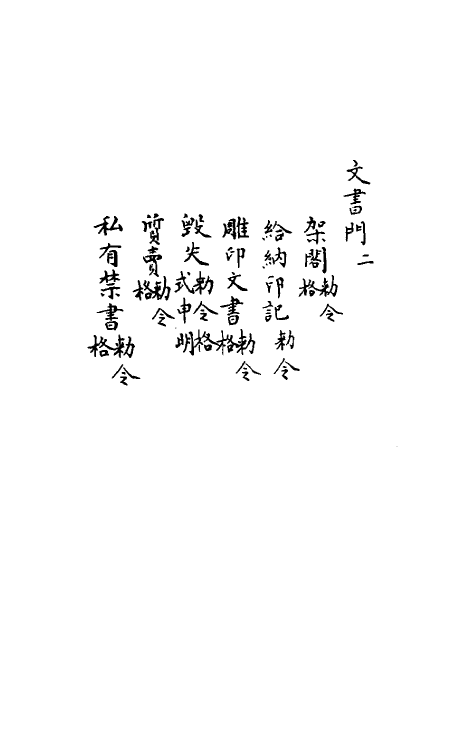 文書門二
架閣敕令格
給納印記敕令
雕印文書敕令格
毀失敕令格式申明
質賣敕令格
私有禁書敕令格